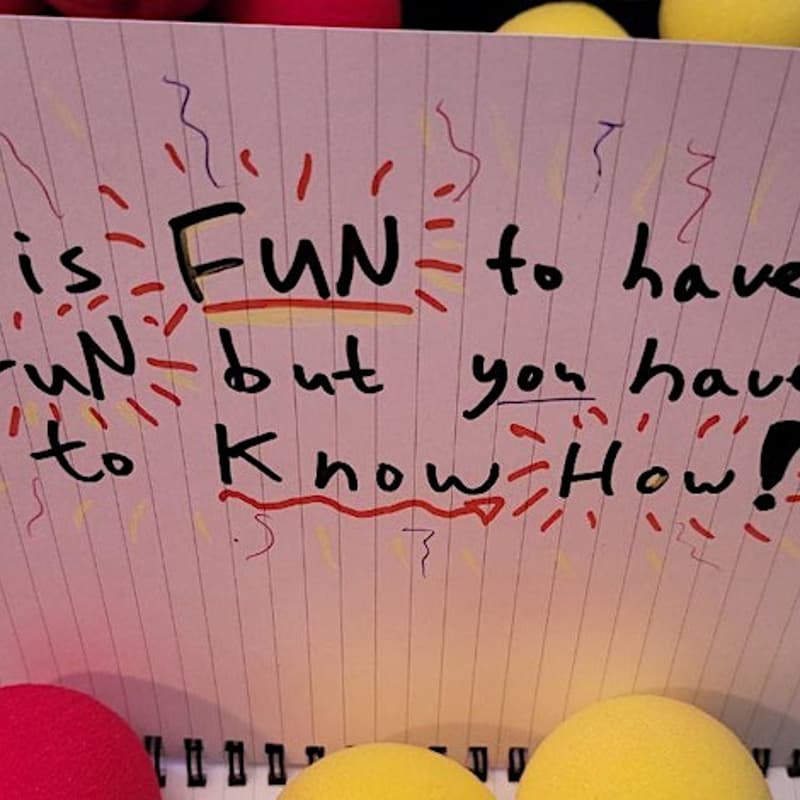 is FUN to have
FuN but you have
to Know How!